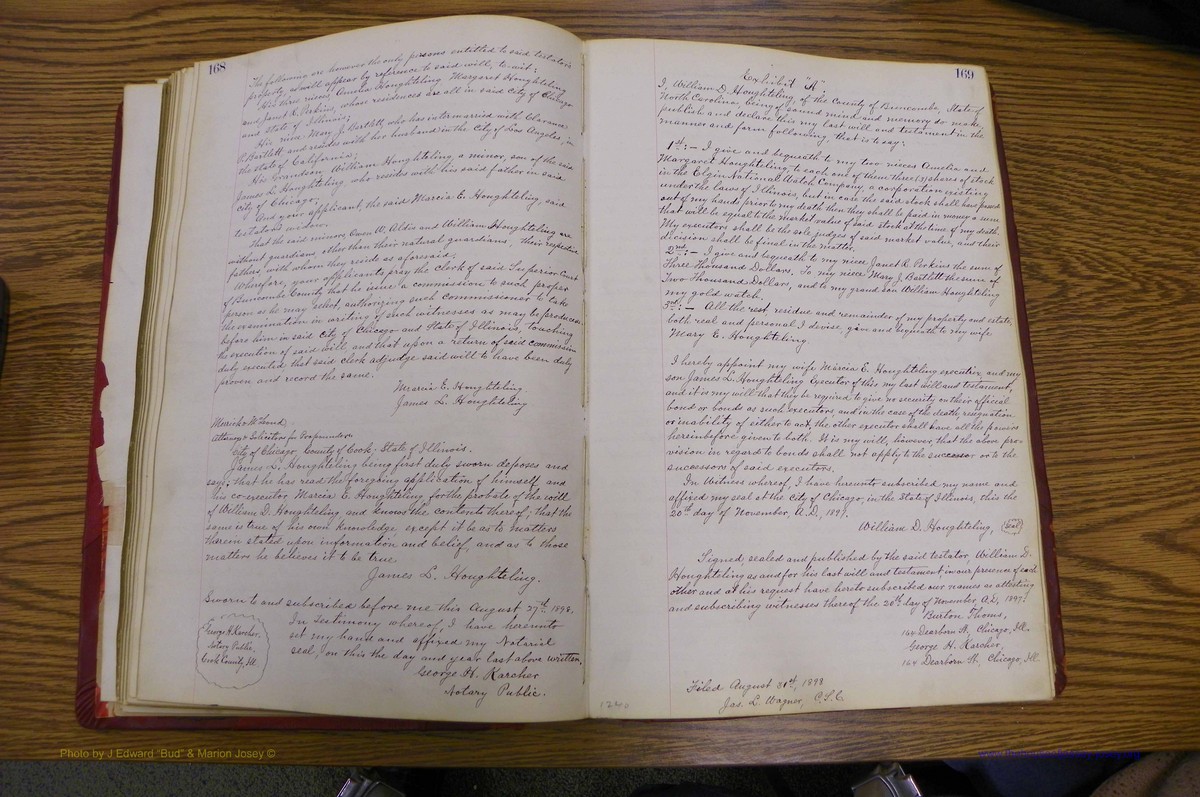 168
The following are however the only persons entitled to said testator's
property, as will appear by reference to said will, to-wit:
His three nieces, Amelia Houghteling Margaret Houghteling
and Janet R. Perkins, whose residences are all in said City of Chicago
and State of Illinois;
His niece Mary J. Bartlett, who has intermarried with Clarence
P. Bartlett and resides with her husband in the City of Los Angeles, in
the state of California;
His Grandson William Houghteling, a minor, son of the said
James L. Houghteling, who resides with his said father in said
city of Chicago;
And your applicant, the said Marcia E. Houghteling, said
testator's widow.
That the said minors, Owen W. Aldis and William Houghteling are
without guardians, other than their natural guardians, their respective
fathers, with whom they reside as aforesaid;
Wherefore, your applicants pray the clerk of said Superior Court
of Buncombe County that he issue a commission to such proper
person as he may select, authorizing such commissioner to take
the examination in writing of such witnesses as may be produced
before him in said city of Chicago and State of Illinois, touching
the execution of said will, and that upon a return of said commission
duly executed, that said clerk adjudge said will to have been duly
proven and record the same.
Marcia E. Houghteling
James L. Houghteling
Merrick &
Attorney & Solicitor for
City of Chicago County of Cook. State of Illinois.
James L. Houghteling being first duly sworn deposes and
says; that he has read the foregoing application of himself and
his co-executor Marcia E. Houghteling for the probate of the will
of William D. Houghteling and knows the contents thereof; that the
same is true of his own knowledge, except it be as to matters
therein stated upon information and belief, and as to those
matters he believes it to be true.
James L. Houghteling.
Sworn to and subscribed before me this August 27th. 1898.
In testimony whereof, I have hereunto
set my hand and affixed my Notarial
seal, on this the day and year last above written.
George H. Karcher
Notary Public.
George H. Karcher.
Notary Public.
Cook County, Ill.
169
Exhibit "A".
I, William D. Houghteling, of the County of Buncombe, State of
North Carolina, being of sound mind and memory do make,
publish and declare this my last will and testament in the
manner and form following, that is to say:
1st:- I give and bequeath to my two nieces Amelia and
Margaret Houghteling, to each one of them three (3) shares of stock
in the Elgin National Watch Company, a corporation existing
under the laws of Illinois, but in case the said stock shall have passed
out of my hands prior to my death then they shall be paid in money a sum
that will be equal to the market value of said stock at the time of my death.
My executors shall be the sole judges of said market value, and their
decision shall be final in the matter.
2nd:- I give and bequeath to my niece Janet R. Perkins the sum of
Three Thousand Dollars. To my niece Mary J. Bartlett the sum of
Two Thousand Dollars, and to my grand son William Houghteling
my gold watch.
3rd:- All the rest, residue and remainder of my property and estate,
both real and personal I devise, give and bequeath to my wife
Mary E. Houghteling.
I hereby appoint my wife, Marcia E. Houghteling executrix and my
son James L. Houghteling Executor of this my last will and testament,
and it is my will that they be required to give no security on their official
bond or bonds as such executors, and in the case of the death, resignation
or inability of either to act, the other executor shall have all the powers
hereinbefore given to both. It is my will, however, that the above pro-
vision in regard to bonds shall not apply to the successor or to the
successors of said executors.
In Witness whereof, I have hereunto subscribed my name and
affixed my seal at the City of Chicago, in the State of Illinois, this the
20th day of November, A.D., 1897.
William D. Houghteling, (Seal)
Signed, sealed and published by the said testator, William D.
Houghteling as and for his last will and testament in our presence of each
other and at his request have hereto subscribed our names as attesting
and subscribing witnesses thereof the 20th day of November, A.D., 1897.
Burton Thoms,
164 Dearborn St., Chicago, Ill.
George H. Karcher,
164 Dearborn St., Chicago, Ill.
Filed August 31st, 1898
Jas. L. Wagner, C.S.C
Photo by J Edward "Bud" & Marion Josey ©